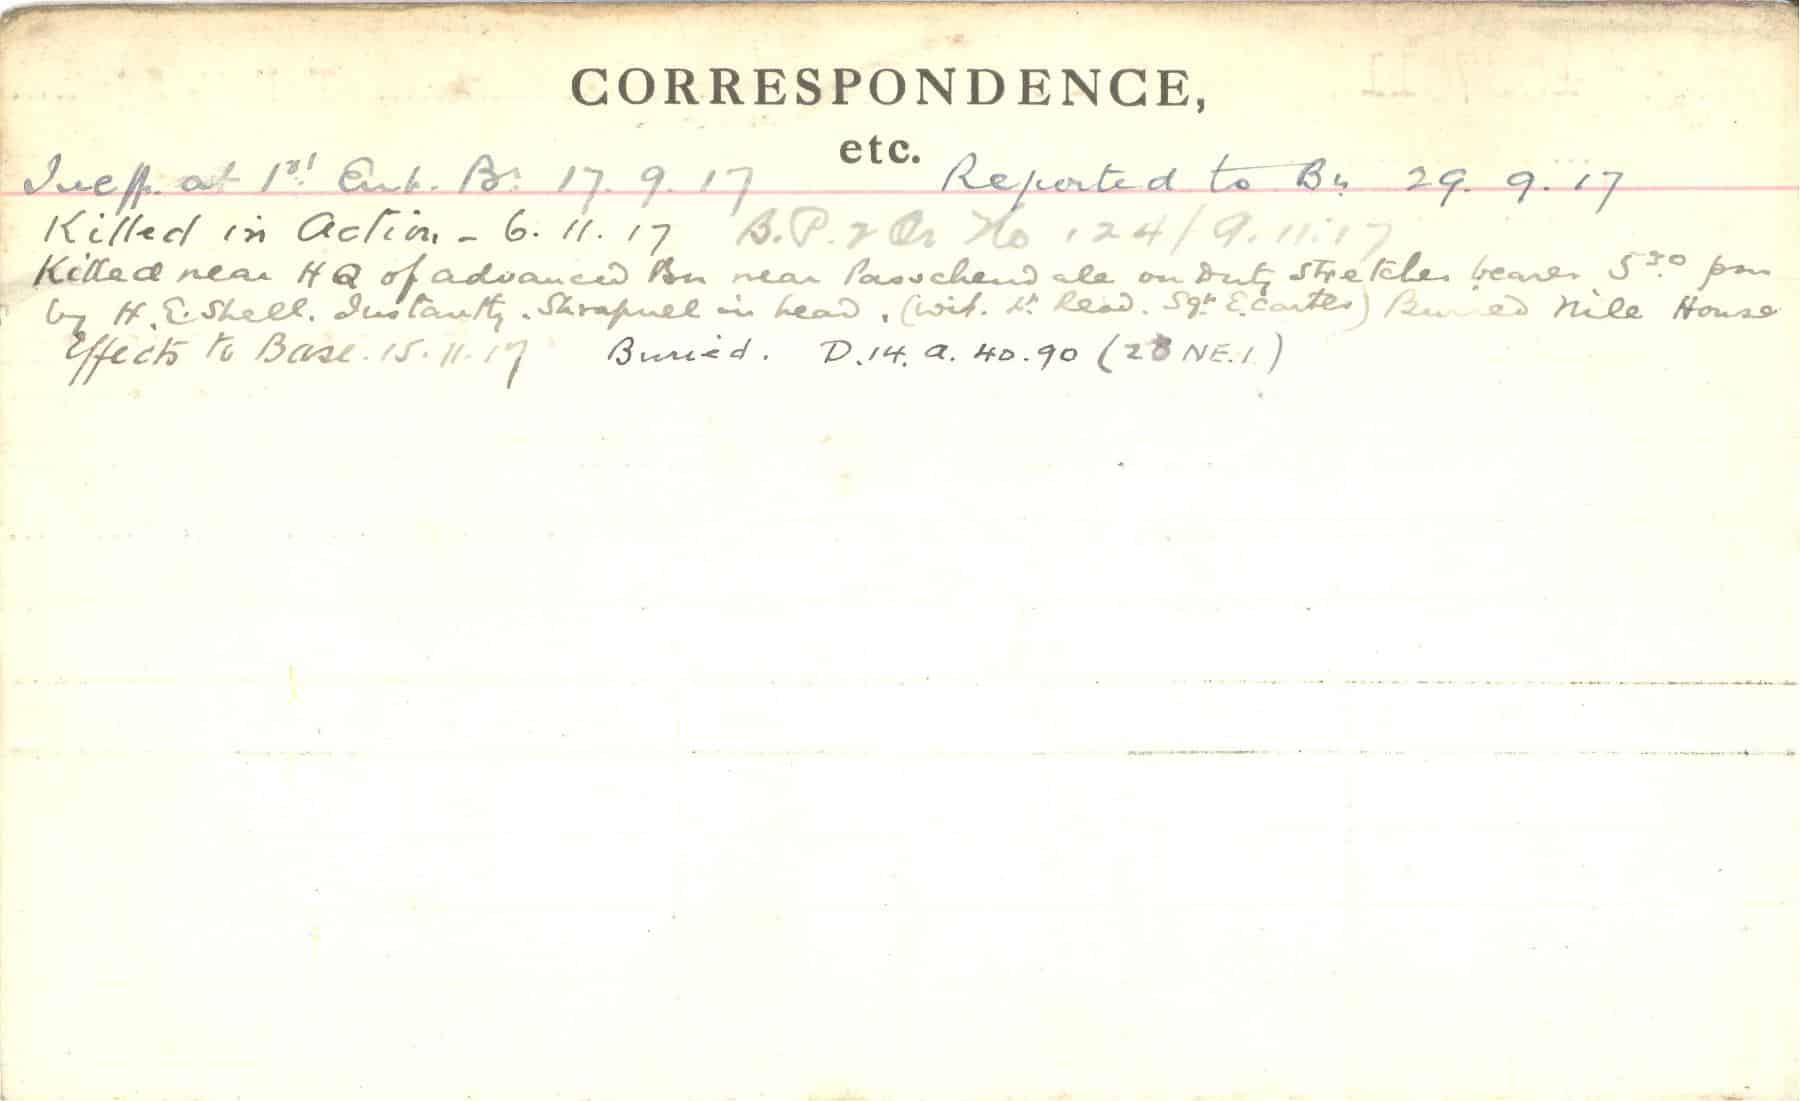 CORRESPONDENCE,
etc.
Ineff. at 1st Ent. Bn 17.9.17 Reported to Bn 29.9.17
Killed in Action - 6.11.17 B.P. 2 Or No 124/9.11.17
Killed near HQ of advanced Bn near Passchendale on Duty stretcher bearer 5 30 pm
by H.E. Shell. Instantly. Shrapnel in head. (Wit. Lt Read. Sgt E. Carter) Buried Nile House
Effects to Base. 15.11.17 Buried. D.14. a. 40.90 (28 NE.1)